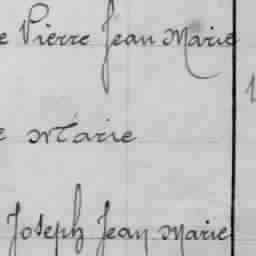 e Pierre Jean Marie
e Marie
Joseph Jean Marie